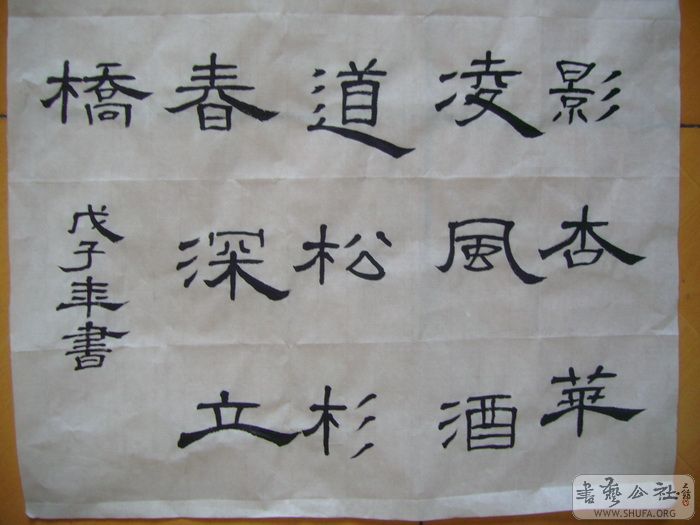 影杏華
凌風酒
道松杉
春深立
橋
戊子年書
書藝公社
WWW.SHUFA.ORG